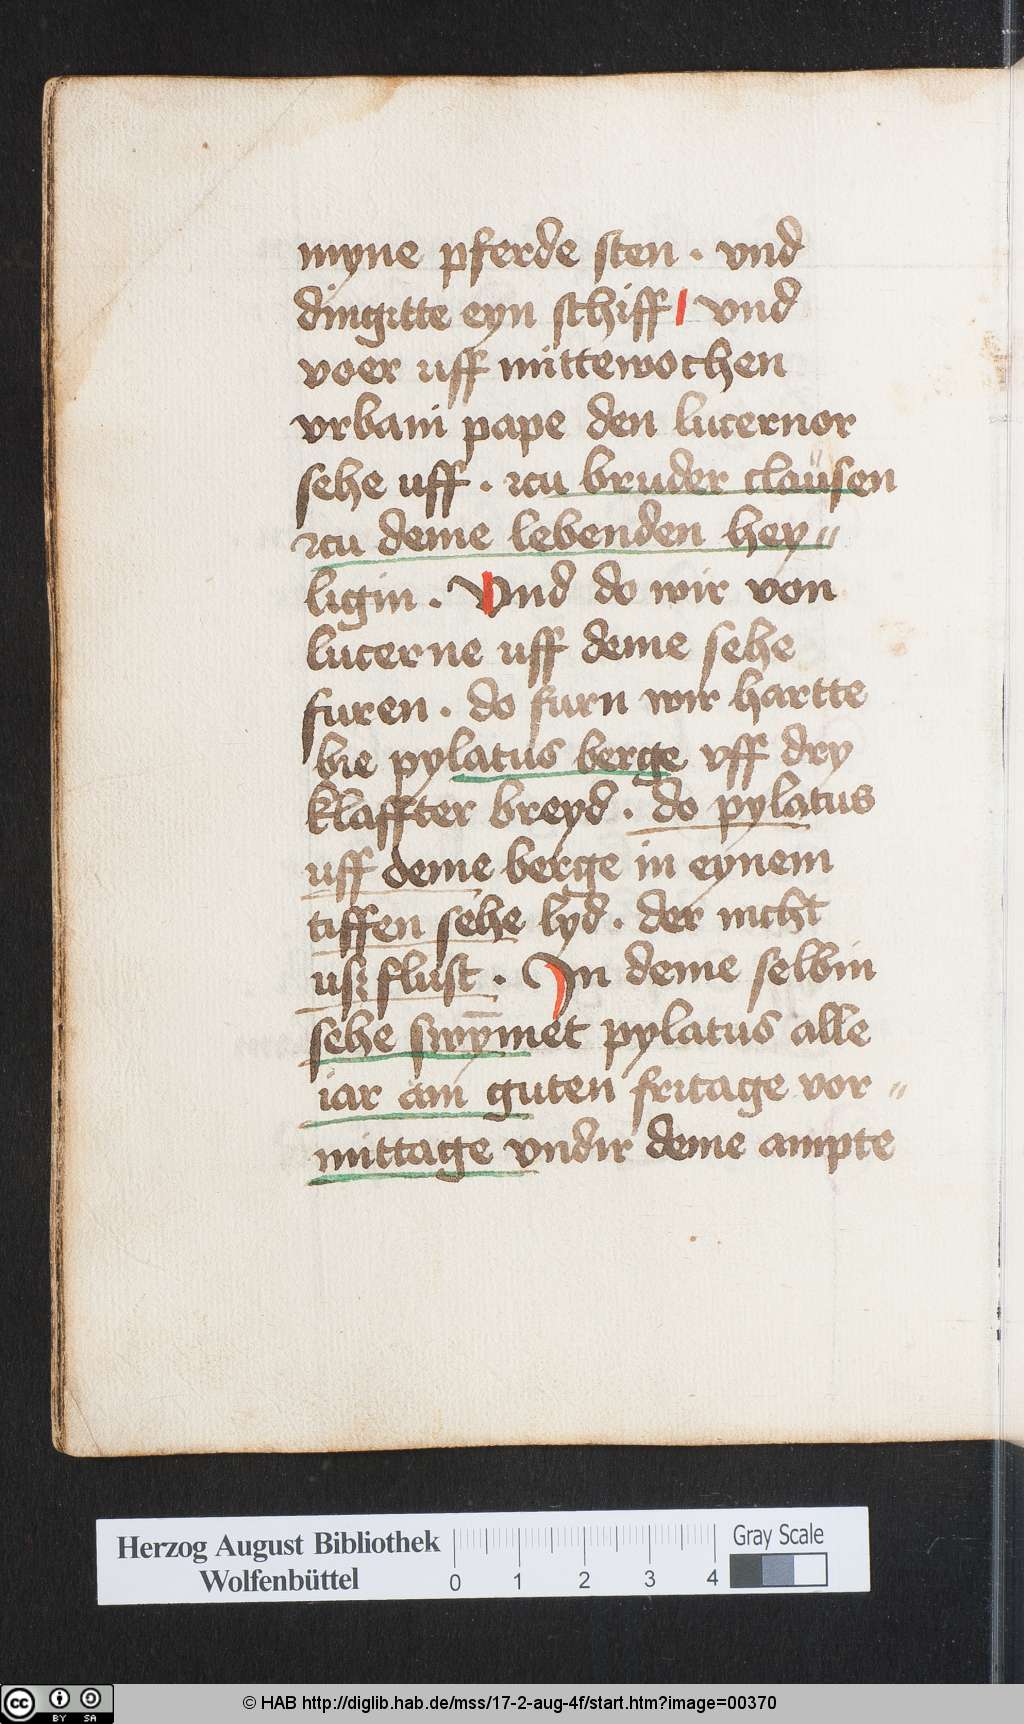 myne pferde sten . vnd
dingitte eyn schiff vnd
voer uff mittewochen
vrbani pape den lucernor
sehe uff . zcu bruder clausen
zcu deme lebenden hey〃
ligin . Vnd do wir von
lucerne uff deme sehe
furen . do furn wir hartte
bie pylatus berge vff dry
klaffter breyd . do pylatus
uff deme berge in eynem
tiffen sehe lyd . der nicht
usz flust . In deme selbin
sehe swym̄et pylatus alle
iar am guten fritage vor〃
mittage vndir deme ampte
Herzog August Bibliothek
Wolfenbüttel
0 1 2 3 4
Gray Scale
cc BY SA
© HAB http://diglib.hab.de/mss/17-2-aug-4f/start.htm?image=00370